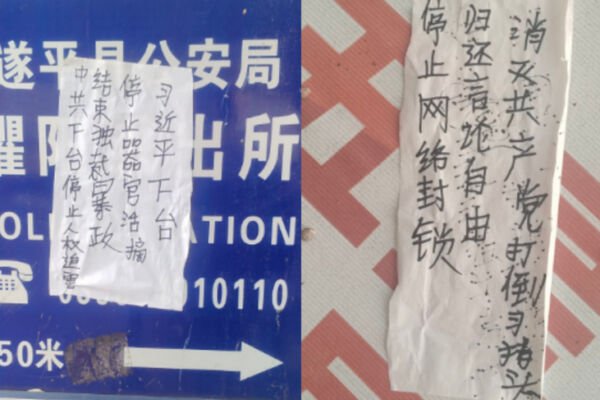 遂平县公安局
瞿阳 出所
OLI ATION
010110
50米
习近平下台
停止器官活摘
结束独裁暴政
中共下台停止人权迫害
消灭共产党打倒习猪头
归还言论自由
停止网络封锁